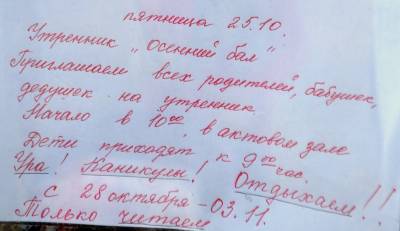 пятница 25.10.
Утренник „Осенний бал"
Приглашаем всех родителей, бабушек,
дедушек на утренник.
Начало в 10⁰⁰, в актовом зале
Дети приходят к 9⁰⁰ час.
Ура! Каникулы! Отдыхаем!!
с 28 октября - 03.11.
Только читаем